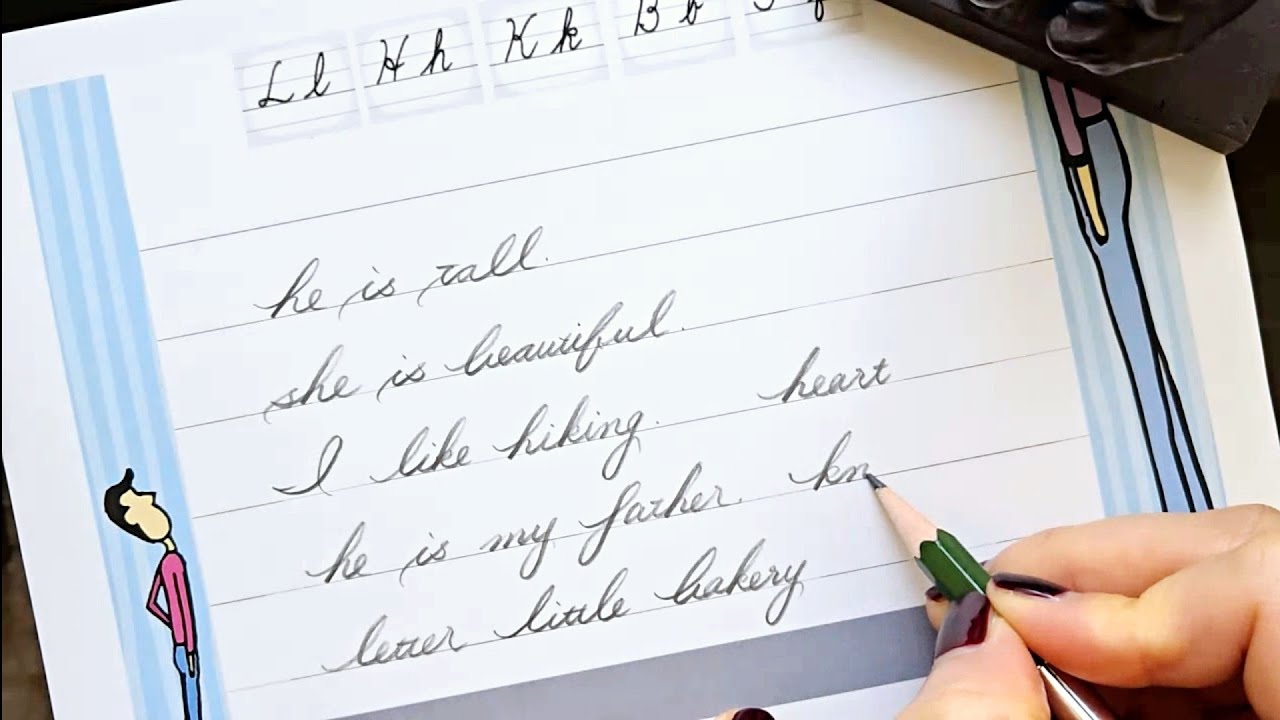 L l H h K k B b
he is tall.
she is beautiful.
I like hiking. heart
he is my father. kn
letter little bakery